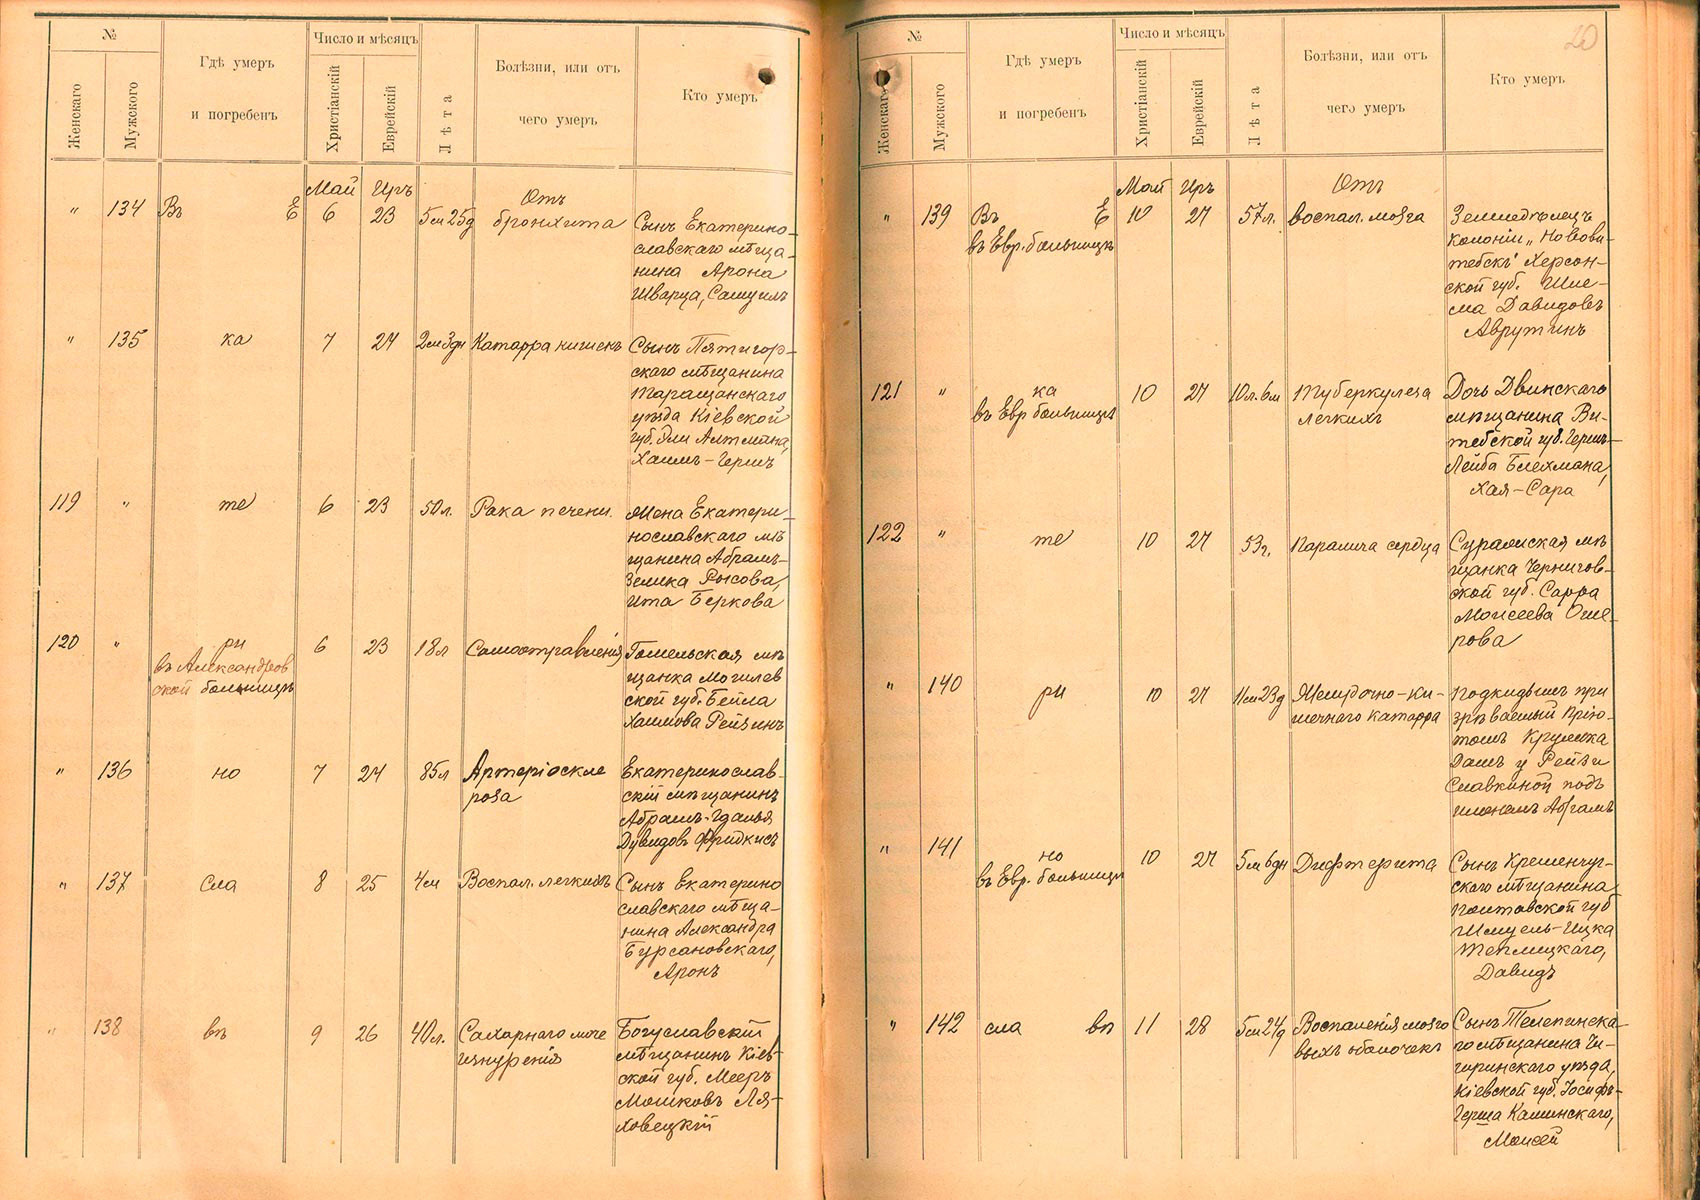 №
Женскаго
Мужского
Гдѣ умеръ
и погребенъ
Число и мѣсяцъ
Христіанскій
Еврейскій
Лѣта
Болѣзни, или отъ
чего умеръ
Кто умеръ
Май Иръ
Отъ
" 134 Въ Е 6 23 5м25д бронхита
Сынъ Екатерино-
славскаго мѣща-
нина Арона
Шварца, Самуилъ
" 135 ка 7 24 2м3дн Катарра кишекъ
Сынъ Пятигор-
скаго мѣщанина
Таращанскаго
уѣзда Кіевской
губ. Эли Алтмана,
Хаимъ-Гершъ
119 " те 6 23 50л. Рака печени.
Жена Екатери-
нославскаго мѣ
щанина Абрамъ-
Зелика Рысова,
Ита Беркова
120 " ри
въ Александров
ской больницѣ
6 23 18л Самоотравленія
Гомельская мѣ
щанка Могилев
ской губ. Бейла
Хаимова Рейзинъ
" 136 но 7 24 85л Артеріоскле
роза
Екатеринослав-
скій мѣщанинъ
Абрамъ-Гдалья
Дувидовъ Фридкисъ
" 137 сла 8 25 4м Воспал. легкихъ
Сынъ Екатерино
славскаго мѣща-
нина Александра
Бурсановскаго,
Аронъ
" 138 въ 9 26 40л. Сахарнаго моче
изнуренія
Богуславскій
мѣщанинъ Кіев-
ской губ. Мееръ
Мошковъ Ля-
ховецкій
20
№
Женскаго
Мужского
Гдѣ умеръ
и погребенъ
Число и мѣсяцъ
Христіанскій
Еврейскій
Лѣта
Болѣзни, или отъ
чего умеръ
Кто умеръ
Май Иръ
Отъ
" 139 Въ Е
въ Евр. больницѣ
10 27 57л. воспал. мозга
Земледѣлецъ
колоніи „Новови-
тебскъ" Херсон-
ской губ. Шле-
ма Давидовъ
Аврутинъ
121 " ка
въ Евр больницѣ
10 27 10л.6м Туберкулеза
легкихъ
Дочь Двинскаго
мѣщанина Ви-
тебской губ. Гершъ-
Лейба Блехмана,
Хая-Сара
122 " те 10 27 53г. Паралича сердца
Суражская мѣ
щанка Чернигов-
ской губ. Сарра
Моисеева Оше-
рова
" 140 ри 10 27 11м23д Желудочно-Ки-
шечнаго катарра
Подкидышъ при
зрѣваемый Прію-
томъ
у Рейзи
Славкиной подъ
именемъ Абрамъ
" 141 но
въ Евр. больницѣ
10 27 5м6дн Дифтерита
Сынъ Кременчуг-
скаго мѣщанина
Полтавской губ
Шмуель-Ицка
Теплицкаго,
Давидъ
" 142 сла въ 11 28 5м24д Воспаленія мозго
выхъ оболочекъ
Сынъ Телепинска-
го мѣщанина Чи-
гиринскаго уѣзда,
Кіевской губ. Іосифъ-
Герша Каминскаго,
Моисей